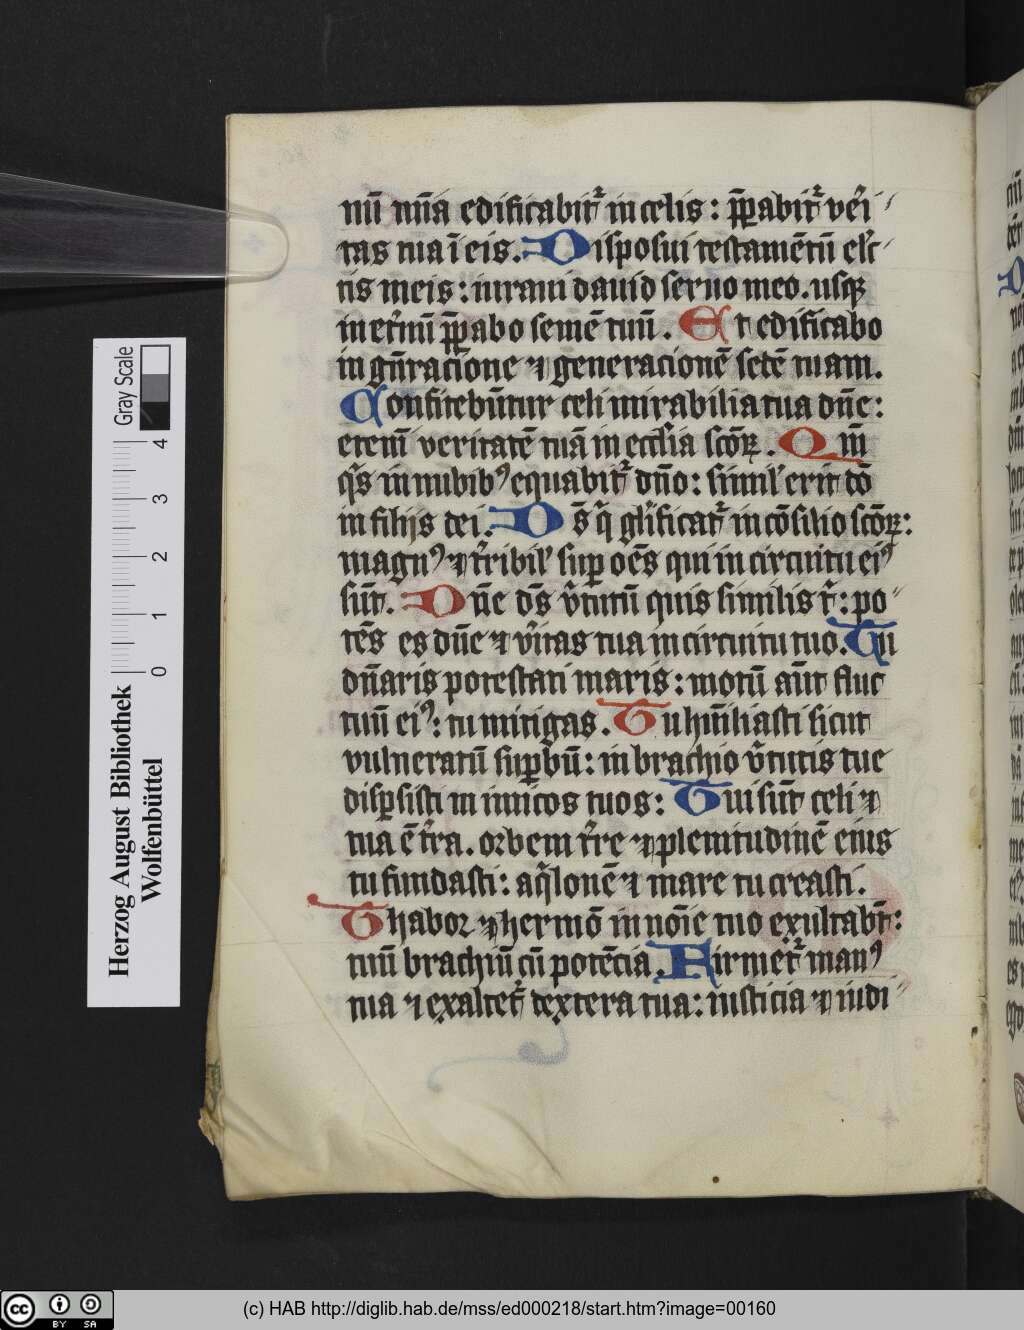 nū mīa edificabit᷑ in celis: p̄pabit᷑ veri
tas tua ī eis. Disposui testamētū elc̄
tis meis: iuraui dauid seruo meo. usq̢
in et᷑nū p̄pabo semē tuū. Et edificabo
in gn̄racione ⁊ generacionē sedē tuam.
Confitebūtur celi mirabilia tua dn̄e:
etenī veritatē tuā in eccl̄ia sc̄oꝝ. Qm̄
q̄s in nubibꝰ equabit᷑ dn̄o: simil᷑ erit dō
in filijs dei. Ds̄ q̄ gl̄ificat᷑ in cōsilio sc̄oꝝ:
magnꝰ ⁊ t᷑ribil᷑ sup oēs qui in circuitu eiꝰ
sūt. Dn̄e ds̄ v᷑tutū quis similis t᷑: po
tēs es dn̄e ⁊ v᷑itas tua in circuitu tuo. Tu
dn̄aris potestati maris: motū aūt fluc
tuū eiꝰ: tu mitigas. Tu hūiliasti sicut
vulneratū supbū: in brachio v᷑tutis tue
dispsisti inimicos tuos: Tui sūt celi ⁊
tua ē t᷑ra. orbem t᷑re ⁊ plenitudinē eius
tu fundasti: aq̄lonē ⁊ mare tu creasti.
Thabor ⁊ hermō in nōīe tuo exultabūt:
tuū brachiū cū potēcia. Firmet᷑ manꝰ
tua ⁊ exaltet᷑ dextera tua: iusticia ⁊ iudi
Gray Scale
0 1 2 3 4
Herzog August Bibliothek
Wolfenbüttel
cc BY SA
(c) HAB http://diglib.hab.de/mss/ed000218/start.htm?image=00160